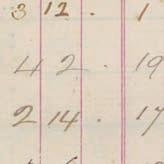 3 12 . 1
4 2 . 19
2 14 . 17